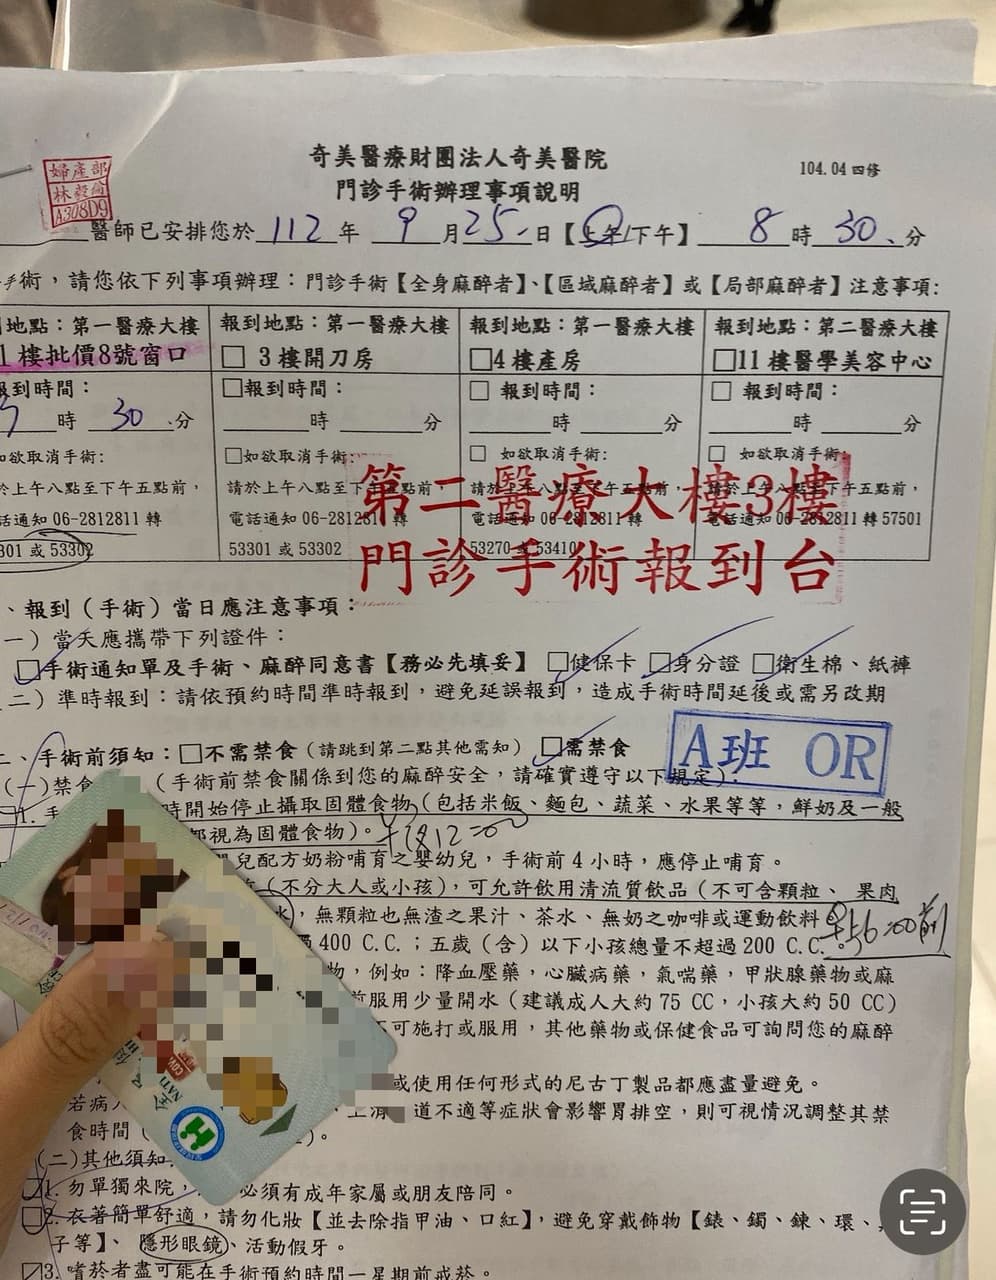 奇美醫療財團法人奇美醫院
104.04 四修
門診手術辦理事項說明
婦產部
林毅倫
A308D9
醫師已安排您於 112 年 9 月 25 日【上午/下午】 8 時 30 分
手術，請您依下列事項辦理：門診手術【全身麻醉者】、【區域麻醉者】或【局部麻醉者】注意事項:
地點：第一醫療大樓
1 樓批價8號窗口
報到時間：
時 30 分
如欲取消手術:
於上午八點至下午五點前，
話通知 06-2812811 轉
301 或 53302
報到地點：第一醫療大樓
□ 3 樓開刀房
□報到時間：
時 分
□如欲取消手術:
請於上午八點至下午五點前，
電話通知 06-2812811 轉
53301 或 53302
報到地點：第一醫療大樓
□4 樓產房
□ 報到時間：
時 分
□ 如欲取消手術:
請於上午八點至下午五點前，
電話通知 06-2812811 轉
53270 或 53410
報到地點：第二醫療大樓
□11 樓醫學美容中心
□ 報到時間：
時 分
□ 如欲取消手術:
請於上午八點至下午五點前，
電話通知 06-2812811 轉 57501
第二醫療大樓3樓
門診手術報到台
、報到（手術）當日應注意事項：
一）當天應攜帶下列證件：
□手術通知單及手術、麻醉同意書【務必先填妥】 □健保卡 □身分證 □衛生棉、紙褲
二）準時報到：請依預約時間準時報到，避免延誤報到，造成手術時間延後或需另改期
A班 OR
二、手術前須知：□不需禁食（請跳到第二點其他需知） □需禁食
(一)禁食（手術前禁食關係到您的麻醉安全，請確實遵守以下規定）:
□1. 手 時開始停止攝取固體食物（包括米飯、麵包、蔬菜、水果等等，鮮奶及一般
都視為固體食物）。 半夜12:00
嬰兒配方奶粉哺育之嬰幼兒，手術前 4 小時，應停止哺育。
（不分大人或小孩），可允許飲用清流質飲品（不可含顆粒、 果肉
水，無顆粒也無渣之果汁、茶水、無奶之咖啡或運動飲料
400 C.C.；五歲（含）以下小孩總量不超過 200 C.C.。 早上6:00前
物，例如：降血壓藥，心臟病藥，氣喘藥，甲狀腺藥物或麻
前服用少量開水（建議成人大約 75 CC，小孩大約 50 CC）
不可施打或服用，其他藥物或保健食品可詢問您的麻醉
或使用任何形式的尼古丁製品都應盡量避免。
若病人 上消 道不適等症狀會影響胃排空，則可視情況調整其禁
食時間（ ）。
(二)其他須知
□1. 勿單獨來院， 必須有成年家屬或朋友陪同。
□2. 衣著簡單舒適，請勿化妝【並去除指甲油、口紅】，避免穿戴飾物【錶、鐲、鍊、環、
子等】、 隱形眼鏡、活動假牙。
□3. 嗜菸者盡可能在手術預約時間一星期前戒菸。